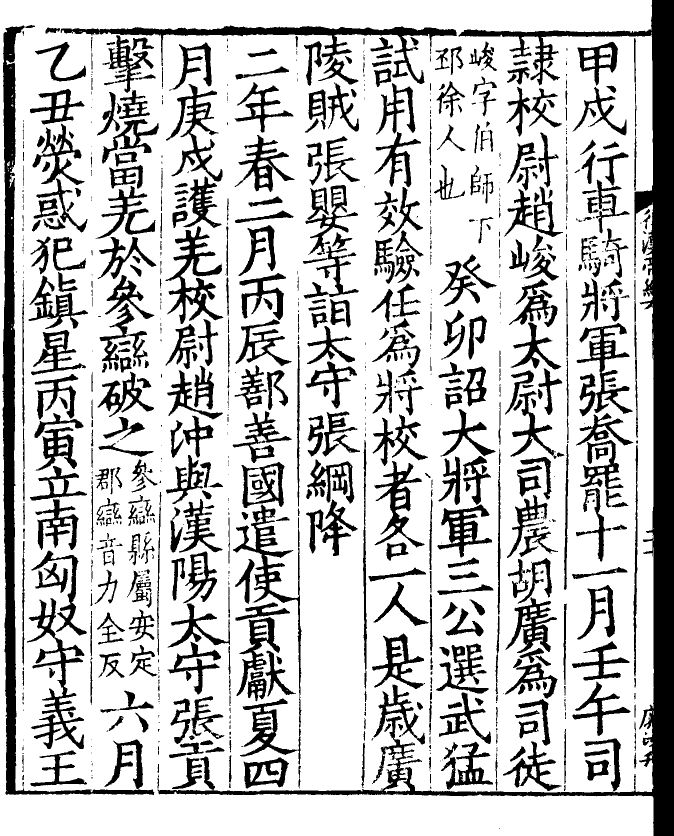 甲戌行車騎將軍張喬罷十一月壬午司
隷校尉趙峻爲太尉大司農胡廣爲司徒
峻字伯師下
邳徐人也
癸卯詔大將軍三公選武猛
試用有效驗任爲將校者各一人是歲廣
陵賊張嬰等詣太守張綱降
二年春二月丙辰鄯善國遣使貢獻夏四
月庚戌護羌校尉趙沖與漢陽太守張貢
擊燒當羌於參䜌破之
參䜌縣屬安定
郡䜌音力全反
六月
乙丑熒惑犯鎮星丙寅立南匈奴守義王